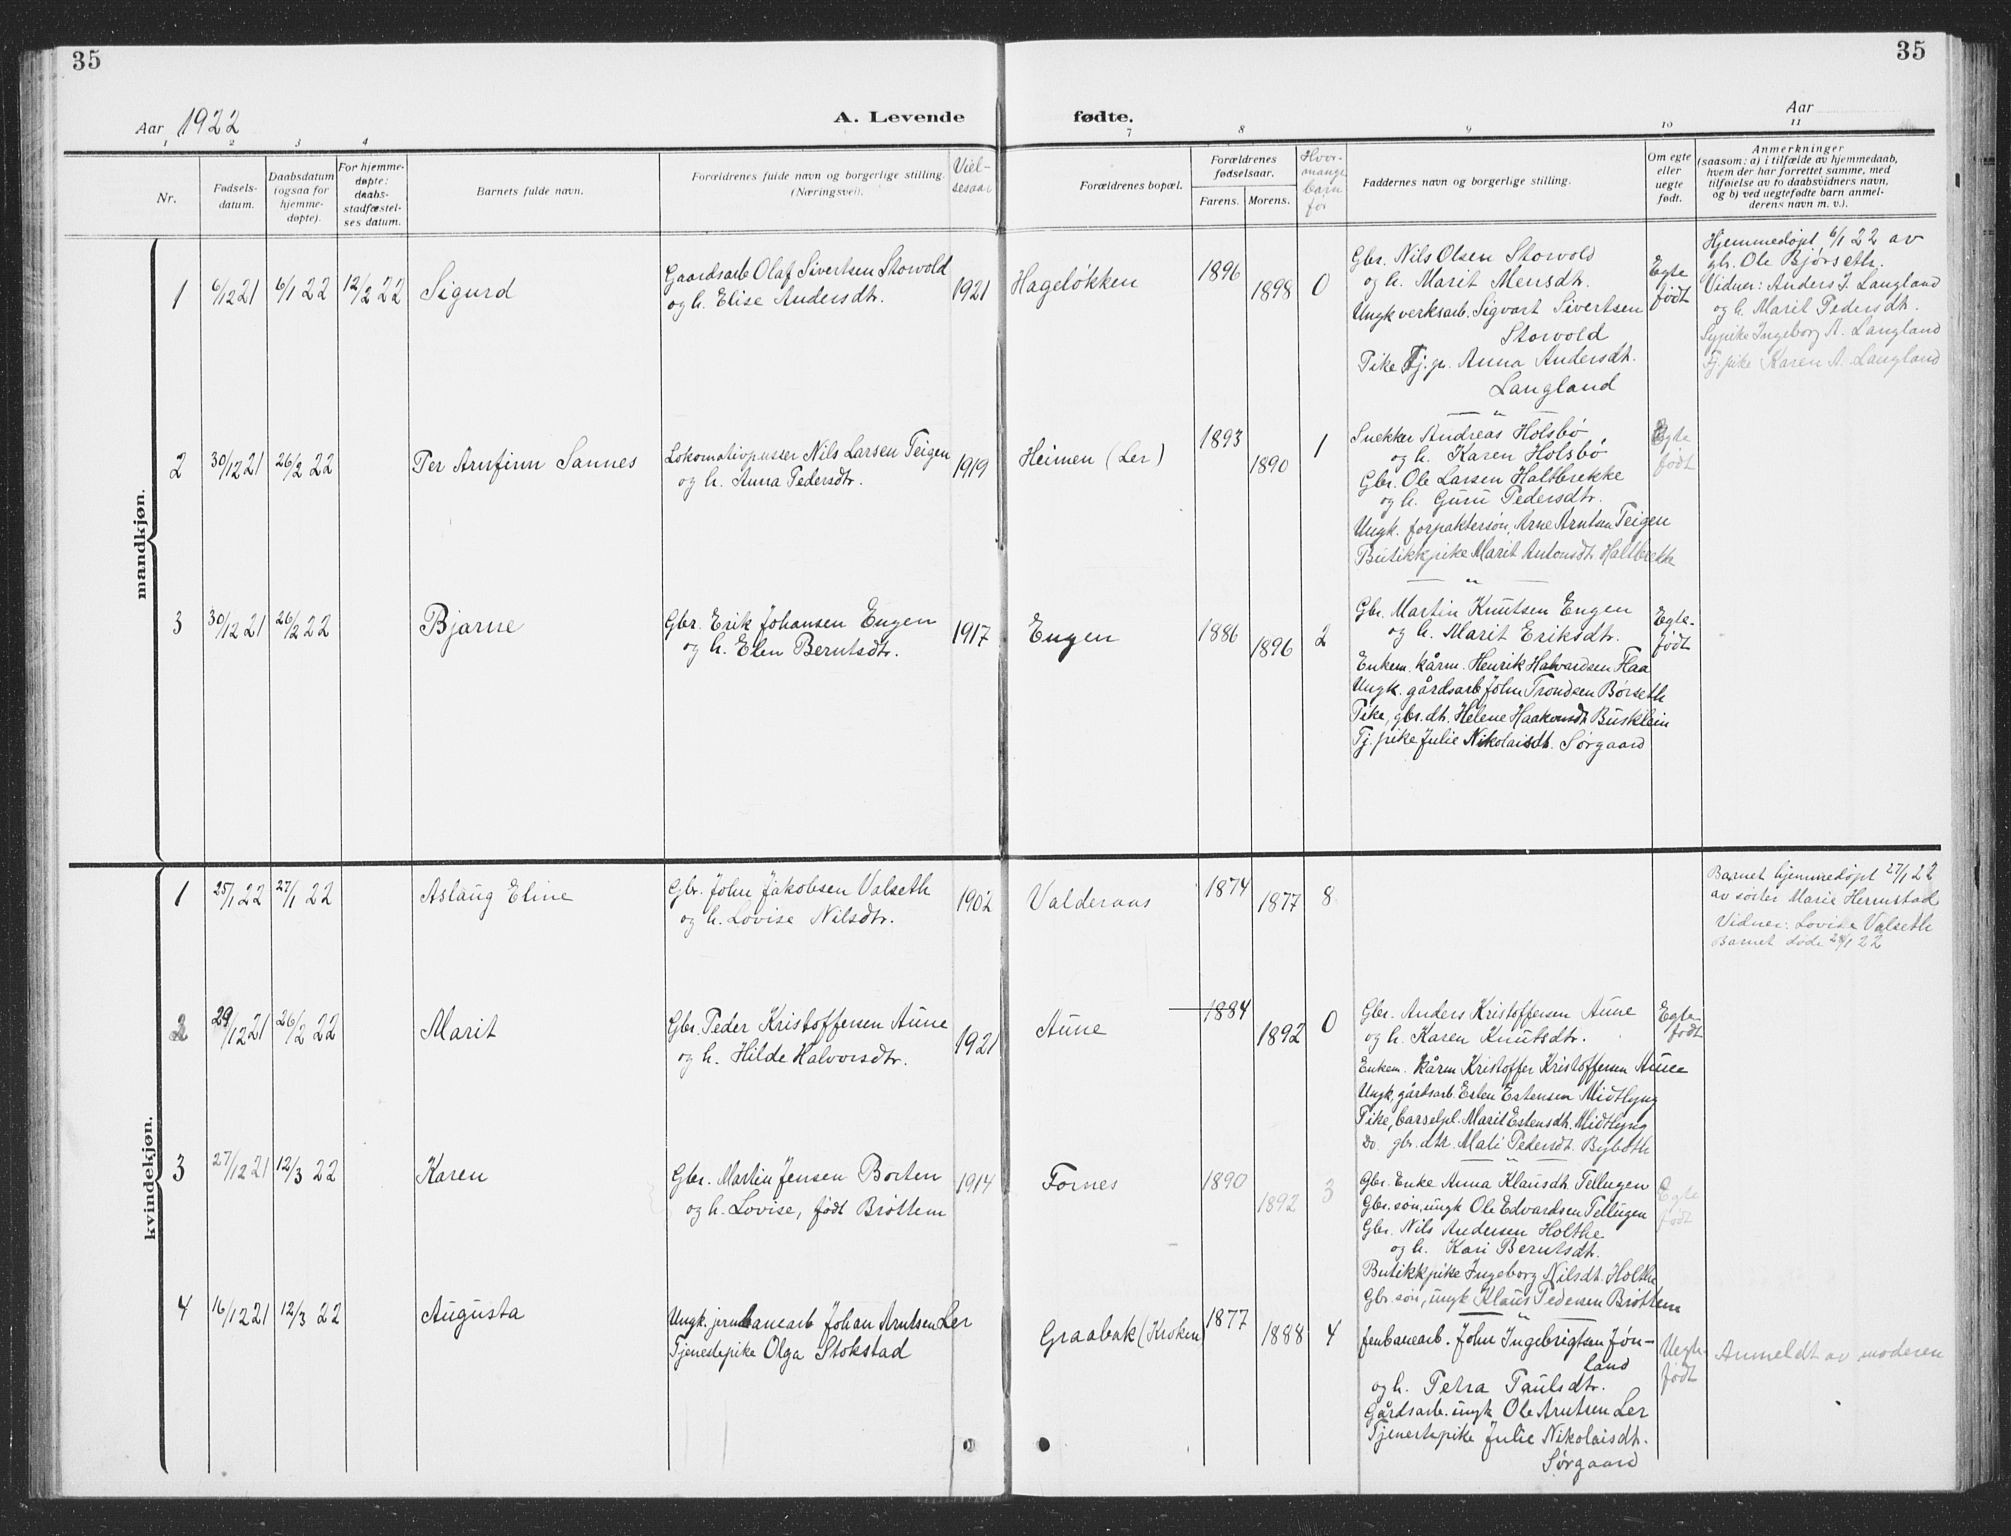 35
35
Aar 1922
A. Levende fødte.
Aar
1 2 3 4 7 8 9 10 11
Nr.
Fødsels-
datum.
Daabsdatum
(ogsaa for
hjemme-
døpte).
For hjemme-
døpte:
daabs-
stadfæstel-
ses datum.
Barnets fulde navn.
Forældrenes fulde navn og borgerlige stilling.
(Næringsvei).
Viel-
sesaar
Forældrenes bopæl.
Forældrenes
fødselsaar.
Farens. Morens.
Hvor-
mange
barn
før
Faddernes navn og borgerlige stilling.
Om egte
eller
uegte
født.
Anmerkninger
(saasom: a) i tilfælde av hjemmedaab,
hvem der har forrettet samme, med
tilføielse av to daabsvidners navn,
og b) ved uegtefødte barn anmel-
derens navn m. v.).
mandkjøn.
1 6/12 21 6/1 22 12/2 22 Sigurd
Gaardsarb Olaf Sivertsen Storvold
og h. Elise Andersdtr.
1921 Hageløkken 1896 1898 0
Gbr. Nils Olsen Storvold
og h. Marit Mensdt.
Ungk verksarb. Sigvart Sivertsen
Storvold
Pike Tj. p. Anna Andersdt.
Langland
Egte
født
Hjemmedøpt 6/1 22 av
gbr. Ole Bjørseth.
Vidner: Anders J. Langland
og h. Marit Pedersdt.
Sypike Ingeborg A. Langland
Tj. pike Karen A. Langland
2 30/12 21 26/2 22 Per Arnfinn Sannes
Lokomativpusser Nils Larsen Teigen
og h. Anna Pedersdtr.
1919 Heimen (Ler) 1893 1890 1
Snekker Andreas Holsbø
og h. Karen Holsbø
Gbr. Ole Larsen Haltbrekke
og h. Guru Pedersdtr.
Ungk. forpaktersøn, Arne Arntsen Teigen
Butikkpike Marit Antonsdt. Haltbrekk
Egte
født
3 30/12 21 26/2 22 Bjarne
Gbr. Erik Johansen Engen
og h. Elen Berntsdtr.
1917 Engen 1886 1896 2
Gbr. Martin Knutsen Engen
og h. Marit Eriksdtr.
Enkem. kårm. Henrik Halvardsen Flaa
Ungk. gårdsarb John Trondsen Børseth
Pike, gbr. dt. Helene Haakonsdt Busklein
Tj. pike Julie Nikolaisdt. Sørgaard
Egte-
født
kvindekjøn.
1 25/1 22 27/1 22 Aslaug Eline
Gbr. John Jakobsen Valseth
og h. Lovise Nilsdtr.
1902 Valderaas 1874 1877 8
Barnet hjemmedøpt 27/1 22
av søster Marie Hermstad
Vidner: Lovise Valseth
Barnet døde 28/1 22
2 29/12 21 26/2 22 Marit
Gbr. Peder Kristoffersen Aune
og h. Hilde Halvorsdtr.
1921 Aune 1884 1892 0
Gbr. Anders Kristoffersen Aune
og h. Karen Knutsdtr.
Enkem. kårm Kristoffer Kristoffersen Aune
Ungk. gårdsarb. Esten Estensen Midtlyng
Pike, barselpl. Marit Estensdt. Midtlyng
Do. gbr. dtr. Mali Pedersdt. Bybøth
Egte-
født
3 27/12 21 12/3 22 Karen
Gbr. Martin Jensen Borten
og h. Lovise, født Brøttem
1914 Fornes 1890 1892 3
Gbr. Enke Anna Klausdt. Tellugen
Gbr. søn, ungk Ole Edvardsen Tellugen
Gbr. Nils Andersen Holthe
og h. Kari Berntsdt.
Butikkpike Ingeborg Nilsdt. Holthe
Gbr søn, ungk Klaus Pedersen Brøttem
Egte
født
4 16/12 21 12/3 22 Augusta
Ungk. jernbanearb Johan Arntsen Ler
Tjenestepike Olga Stokstad
Graabak (Kroken) 1877 1888 4
Jernbanearb. John Ingebrigtsen Jøn-
land
og h. Petra Paulsdtr.
Gårdsarb. ungk Ole Arntsen Ler
Tjenestepike Julie Nikolaisdt.
Sørgaard
Uegte-
født
Anmeldt av moderen